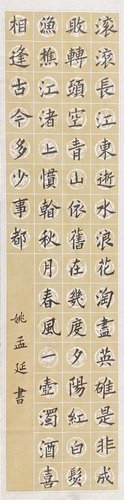 滾滾長江東逝水浪花淘盡英雄是非成
敗轉頭空青山依舊在幾度夕陽紅白髮
漁樵江渚上慣看秋月春風一壺濁酒喜
相逢古今多少事都
姚孟延書